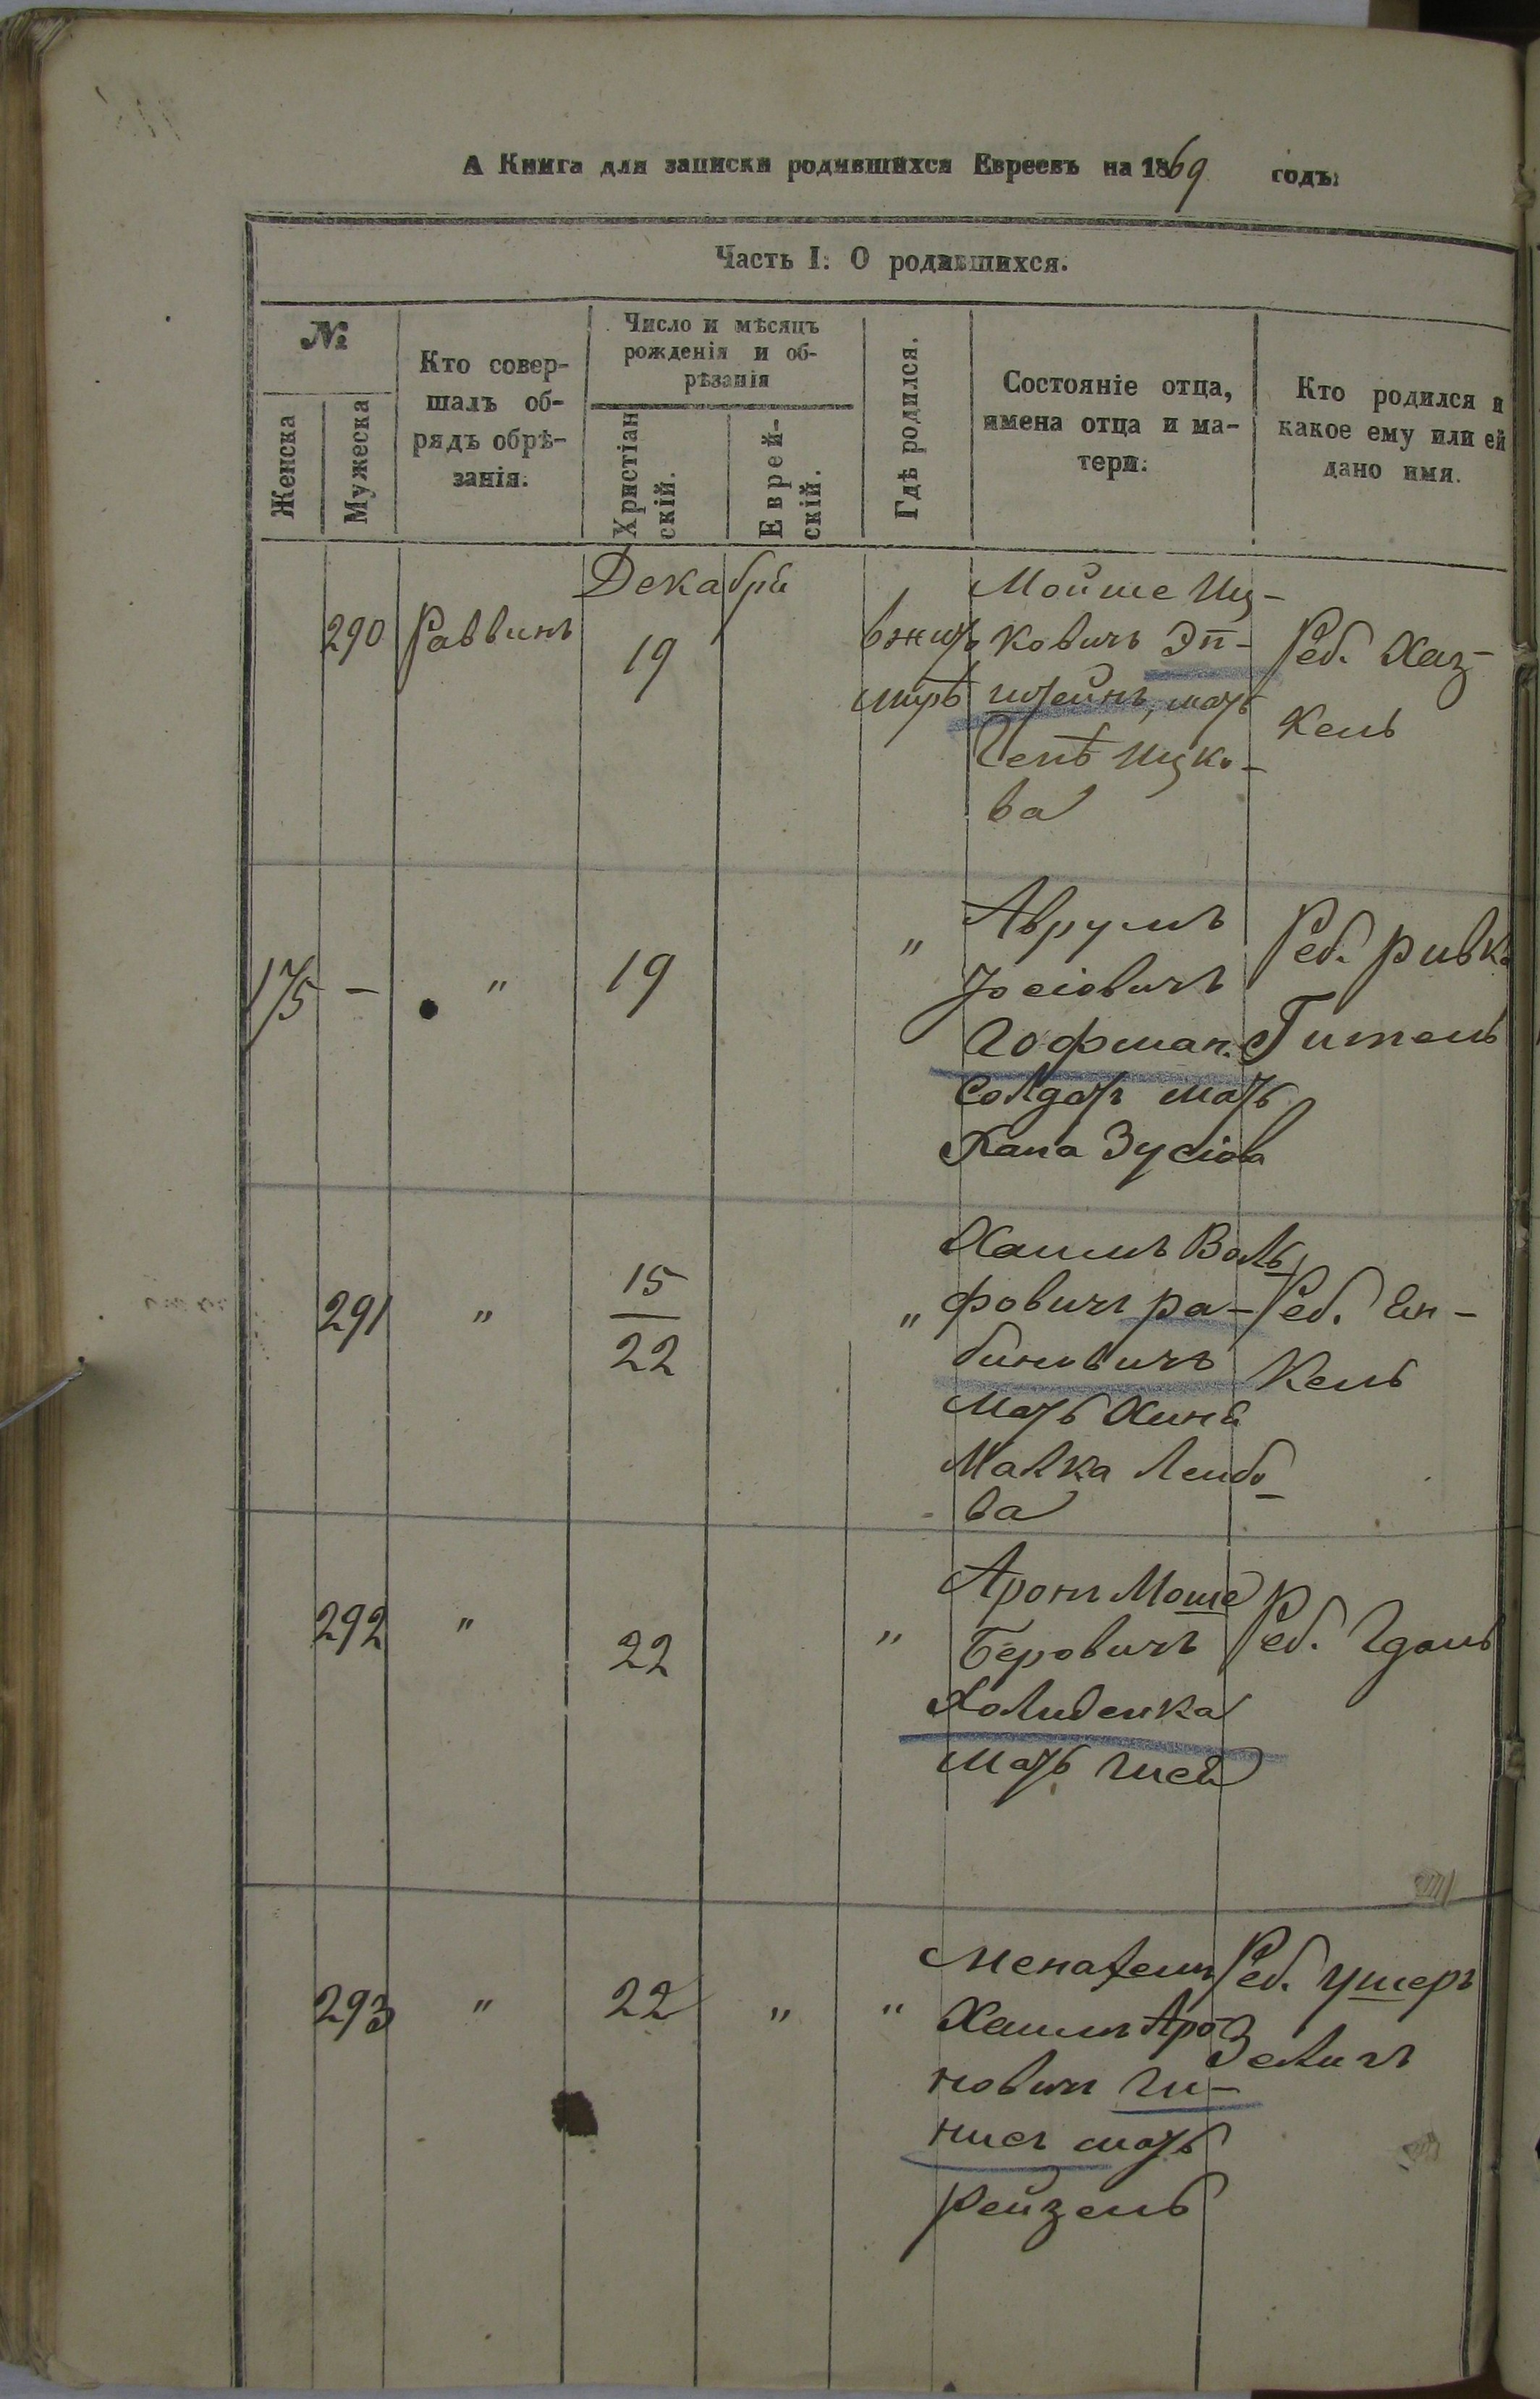 А Книга для записки родившихся Евреевъ на 1869 годъ:
Часть I: О родившихся.
№
Женска
Мужеска
Кто совер-
шалъ об-
рядъ обрѣ-
занія.
Число и мѣсяцъ
рожденія и об-
рѣзанія
Христіан
скій.
Еврей-
скій.
Гдѣ родился.
Состояніе отца,
имена отца и ма-
тери.
Кто родился и
какое ему или ей
дано имя.
Декабря
290
Раввинъ
19
вжито
мирѣ
Мойше Иц-
ковичъ Эп-
штейнъ, мать
Ицко-
ва
Реб. Хаз-
кель
175 - " 19 "
Аврумъ
Іосіовичъ
Гофман.
Солдатъ мать
Хана Зусіова
Реб. Ривка
Гитель
291 "
15
22
"
Хаимъ Воль
фовичъ Ра-
биновичъ
мать Хиня
Малка Лейбо
ва
Реб. Ян-
кель
292 " 22 "
Аронъ Моше
Беровичъ
Холиденка
мать
Реб. Гдаль
293 " 22 " "
Менахемъ
Хаимъ Аро
новичъ Ги-
нисъ мать
Рейзель
Реб. Ушеръ
Зелигъ